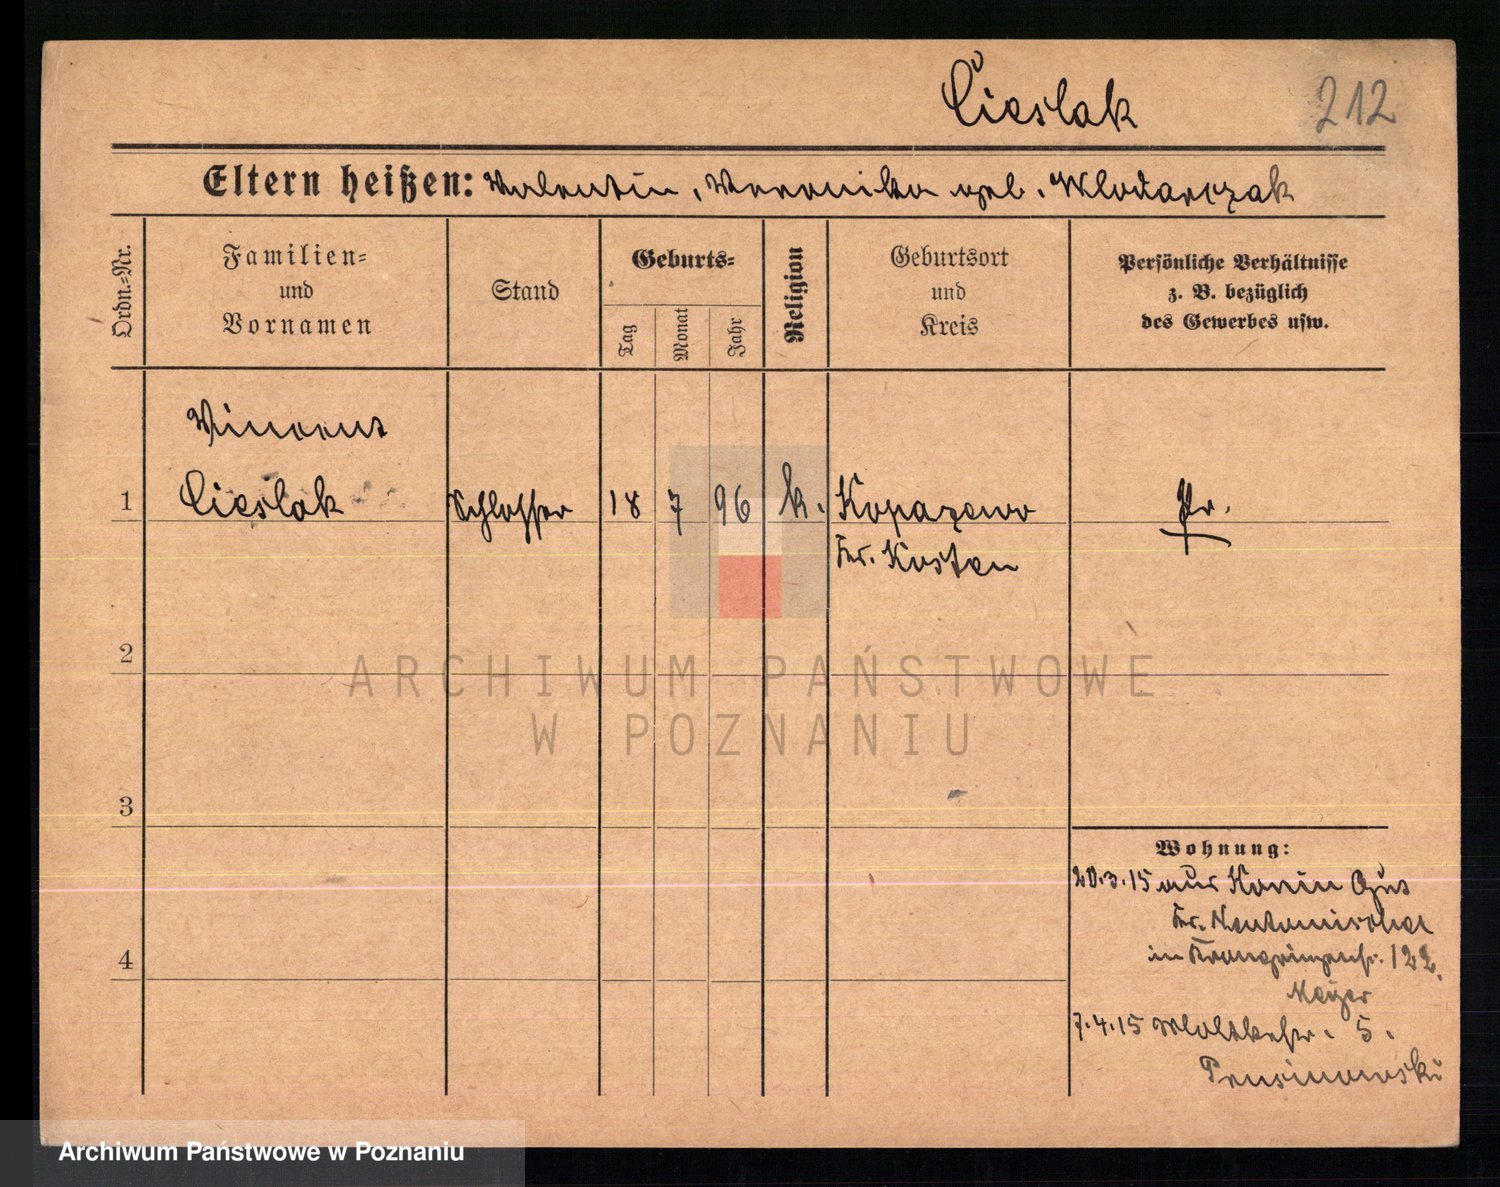 Cieślak 212
Eltern heißen: Valentin, Weronika geb. Wlodarczak
Ordn.-Nr.
Familien-
und
Vornamen
Stand
Geburts-
Tag
Monat
Jahr
Religion
Geburtsort
und
Kreis
Persönliche Verhältnisse
z. B. bezüglich
des Gewerbes usw.
Vincent
1 Cieslak Schlosser 18 7 96 k. Kopaszewo Pr.
Kr. Kosten
2
3
4
ARCHIWUM PAŃSTWOWE
W POZNANIU
Wohnung:
20.3.15 aus Konin Gut
Kr. Neutomischel
in Kronprinzenstr. 122.
Meyer
7.4.15 Moltkestr. 5.
Archiwum Państwowe w Poznaniu